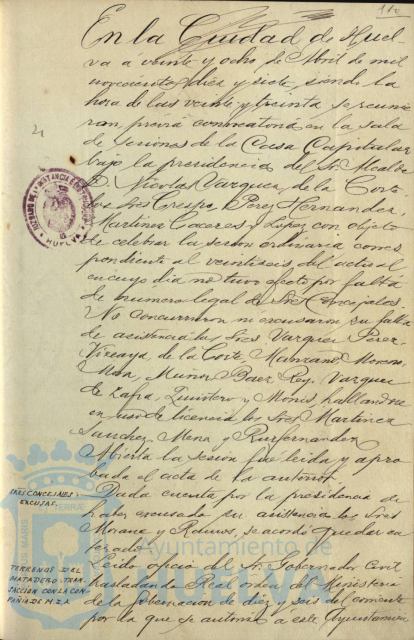 110
En la Ciudad de Huel-
va a veinte y ocho de Abril de mil
novecientos diez y siete, siendo la
hora de las veinte y treinta se reunie
ron, previa convocatoria en la sala
de sesiones de la Casa Capitular
bajo la presidencia del Sr. Alcalde
D. Nicolas Vazquez de la Corte
los Sres Crespo, Perez Hernandez,
Martinez Caceres y Lopez con objeto
de celebrar la sesion ordinaria corres
pondiente al veintiseis del actual
en cuyo dia no tuvo efecto por falta
de numero legal de Sres Concejales.
No concurrieron ni excusaron su falta
de asistencia los Sres Vazquez Perez,
Vizcaya, de la Corte, Manzano, Moreno,
Mora, Muñoz, Baez, Rey, Vazquez
de Zafra, Quintero y Monis, hallandose
en uso de licencia los Sres Martinez
Sanchez, Mena y Ruifernandez
Abierta la sesion fue leida y apro
bada el acta de la anterior.
Dada cuenta por la presidencia de
haber excusado su asistencia los Sres
y se acordó quedar en
terado
Leido oficio del Sr. Gobernador Civil
trasladando Real orden del Ministerio
de la Gobernacion de diez y seis del corriente
por la que se autoriza a este Ayuntamien
HUELVA
CONCEJALES
EXCUSAS.
TERRENOS DEL
MATADERO: TRAN-
SACCION CON LA COM-
PAÑIA DE M.Z.A.
Ayuntamiento de
HUELVA